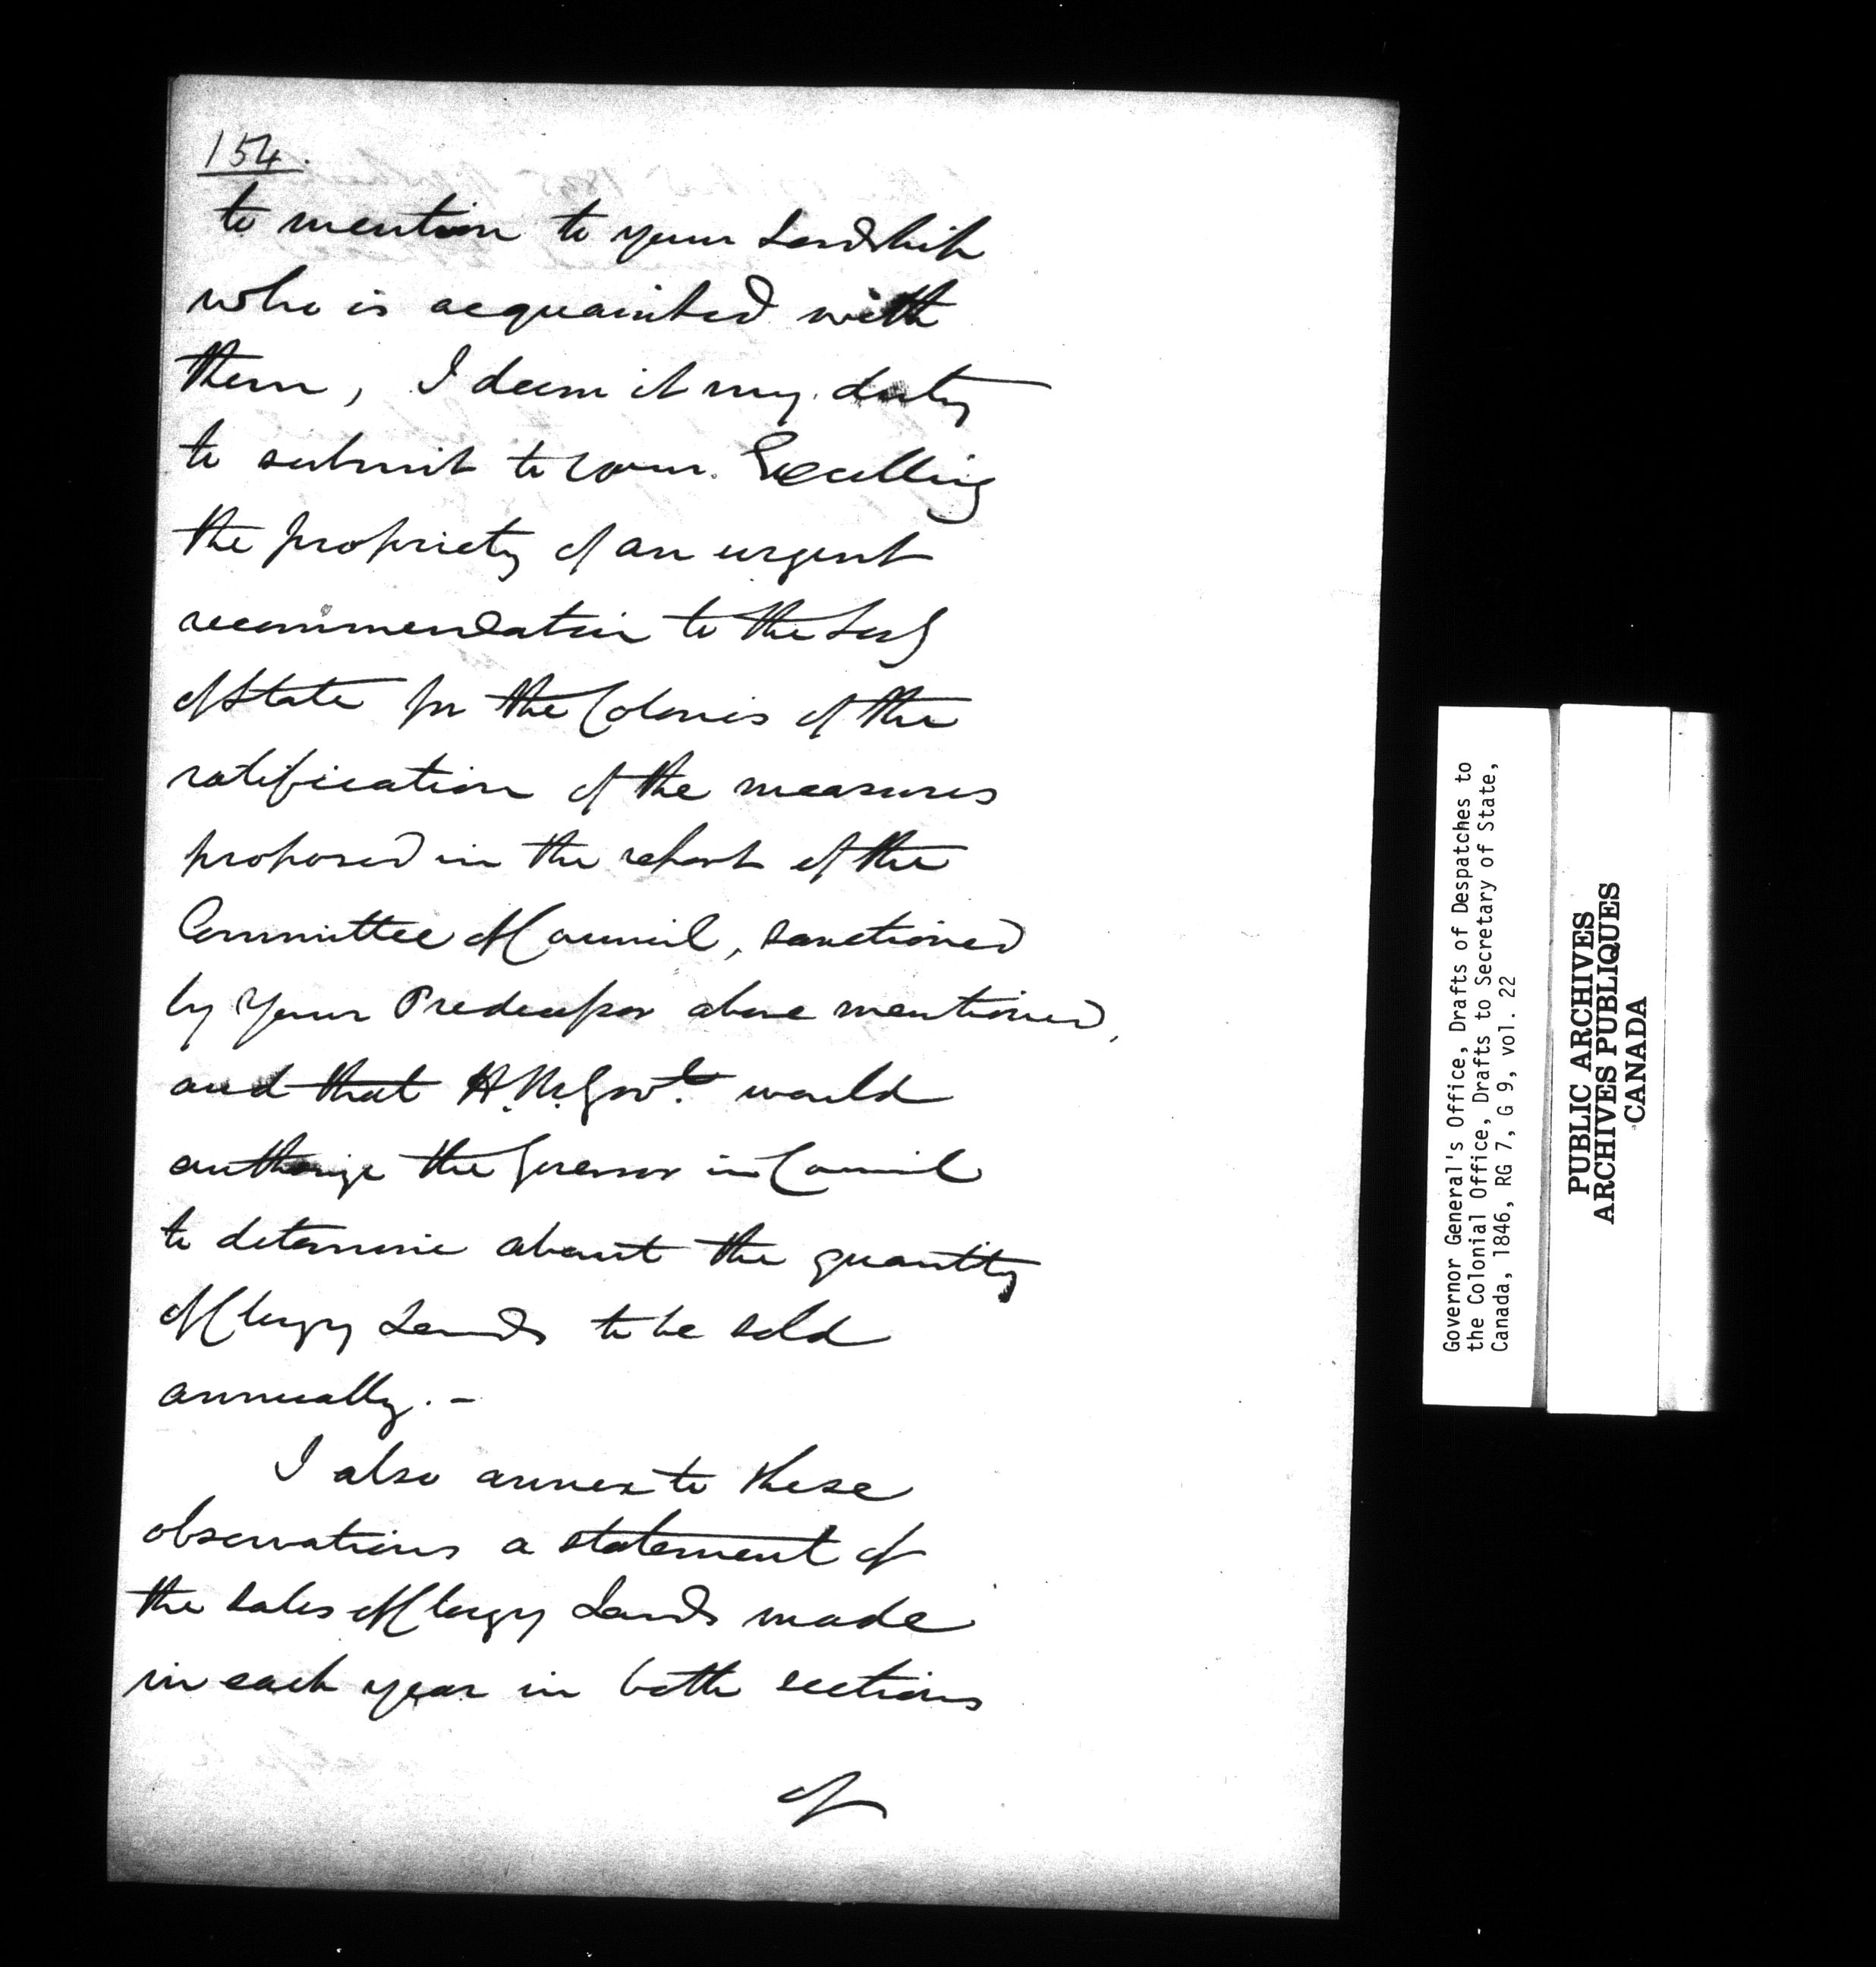 154.
to mention to your Lordship
who is acquainted with
them, I deem it my duty
to submit to your Excellency
the propriety of an urgent
recommendation to the Secy
of State for the Colonies of the
ratification of the measures
proposed in the report of the
Committee of Council, sanctioned
by Your Predecessor above mentioned,
and that H.M. Govt. would
authorize the Governor in Council
to determine about the quantity
of Clergy Lands to be sold
annually. -
I also annex to these
observations a statement of
the sales of Clergy Lands made
in each year in both sections
of
Governor General's Office, Drafts of Despatches to
the Colonial Office, Drafts to Secretary of State,
Canada, 1846, RG 7, G 9, vol. 22
PUBLIC ARCHIVES
ARCHIVES PUBLIQUES
CANADA